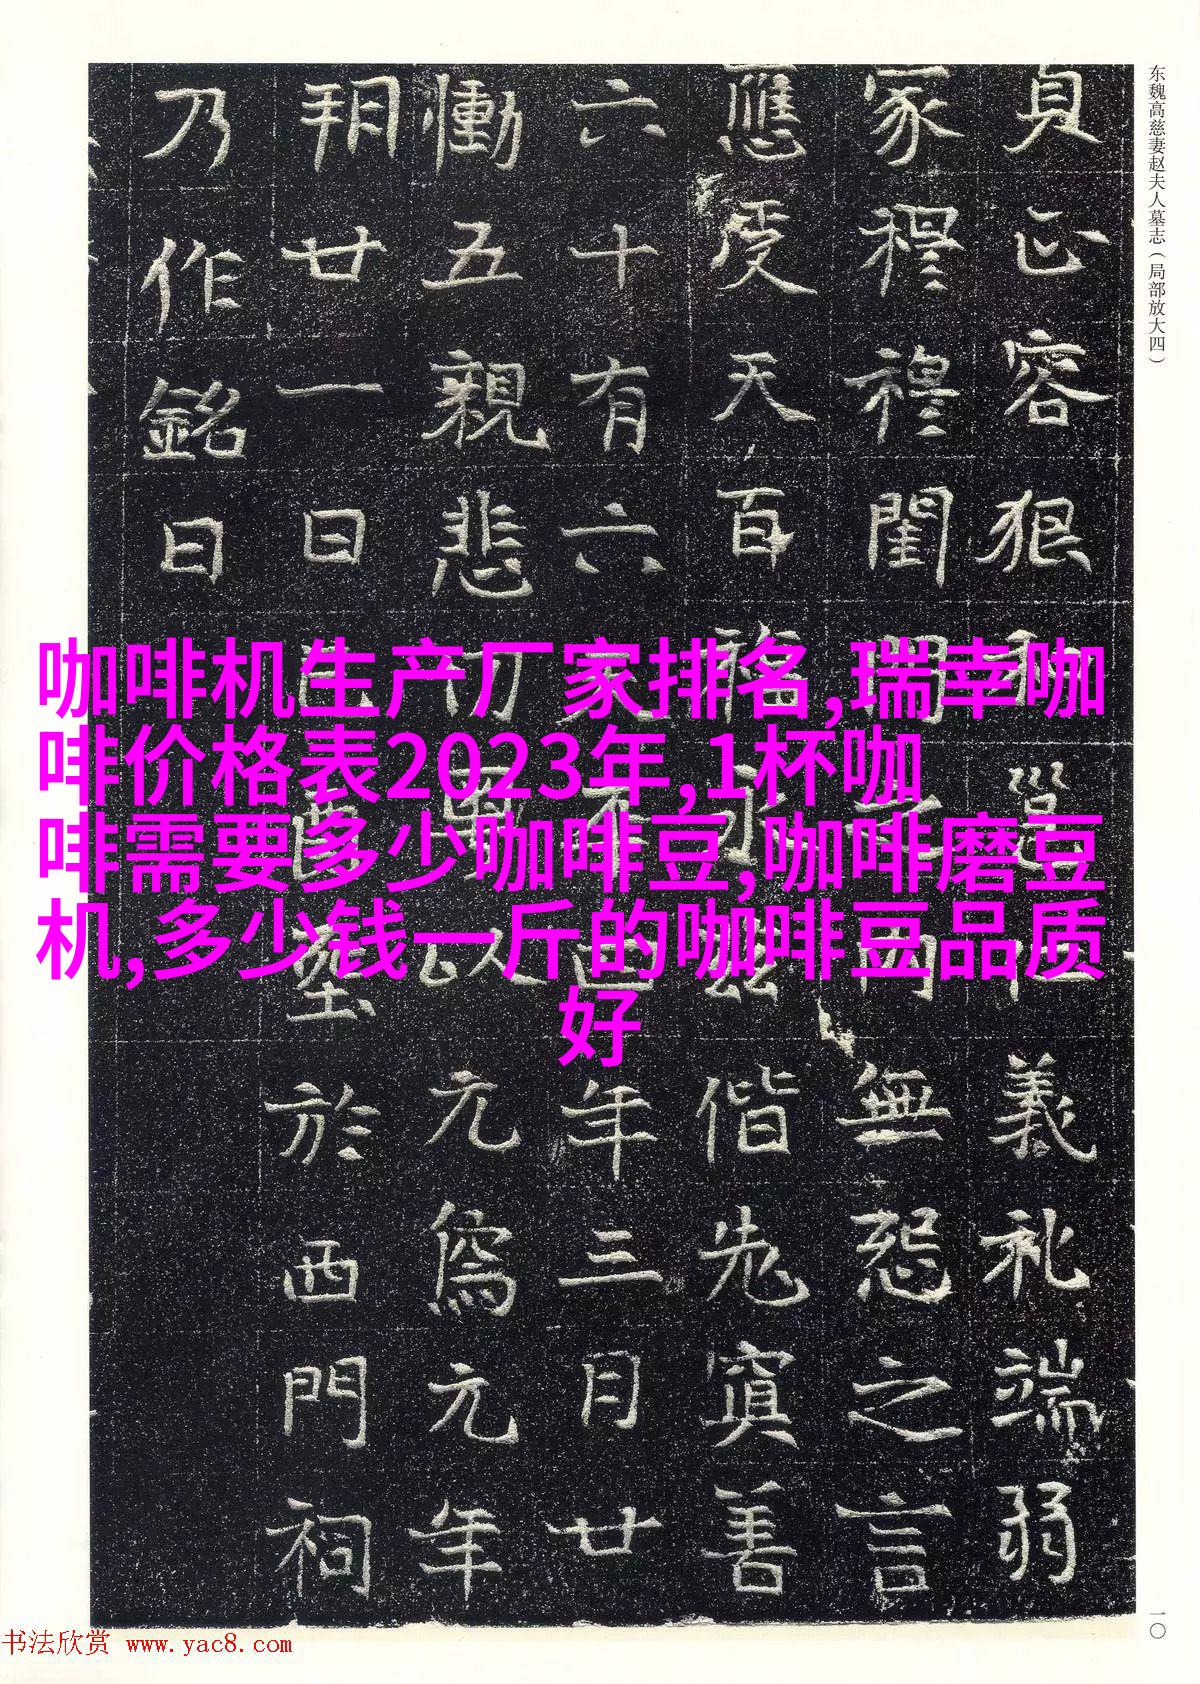 东魏高慈妻赵夫人墓志（局部放大四）
貞正容狠邕義礼端弱
家穆穆閨門内無怨之言
應受天百祿永偕老寘善
六十有六年三月廿
慟五親悲以元為元年
朔廿一日塟於西門祠
乃作銘曰
咖啡机生产厂家排名,瑞幸咖
啡价格表2023年,1杯咖
啡需要多少咖啡豆,咖啡磨豆
机,多少钱一斤的咖啡豆品质
好
一〇
书法欣赏 www.yac8.com